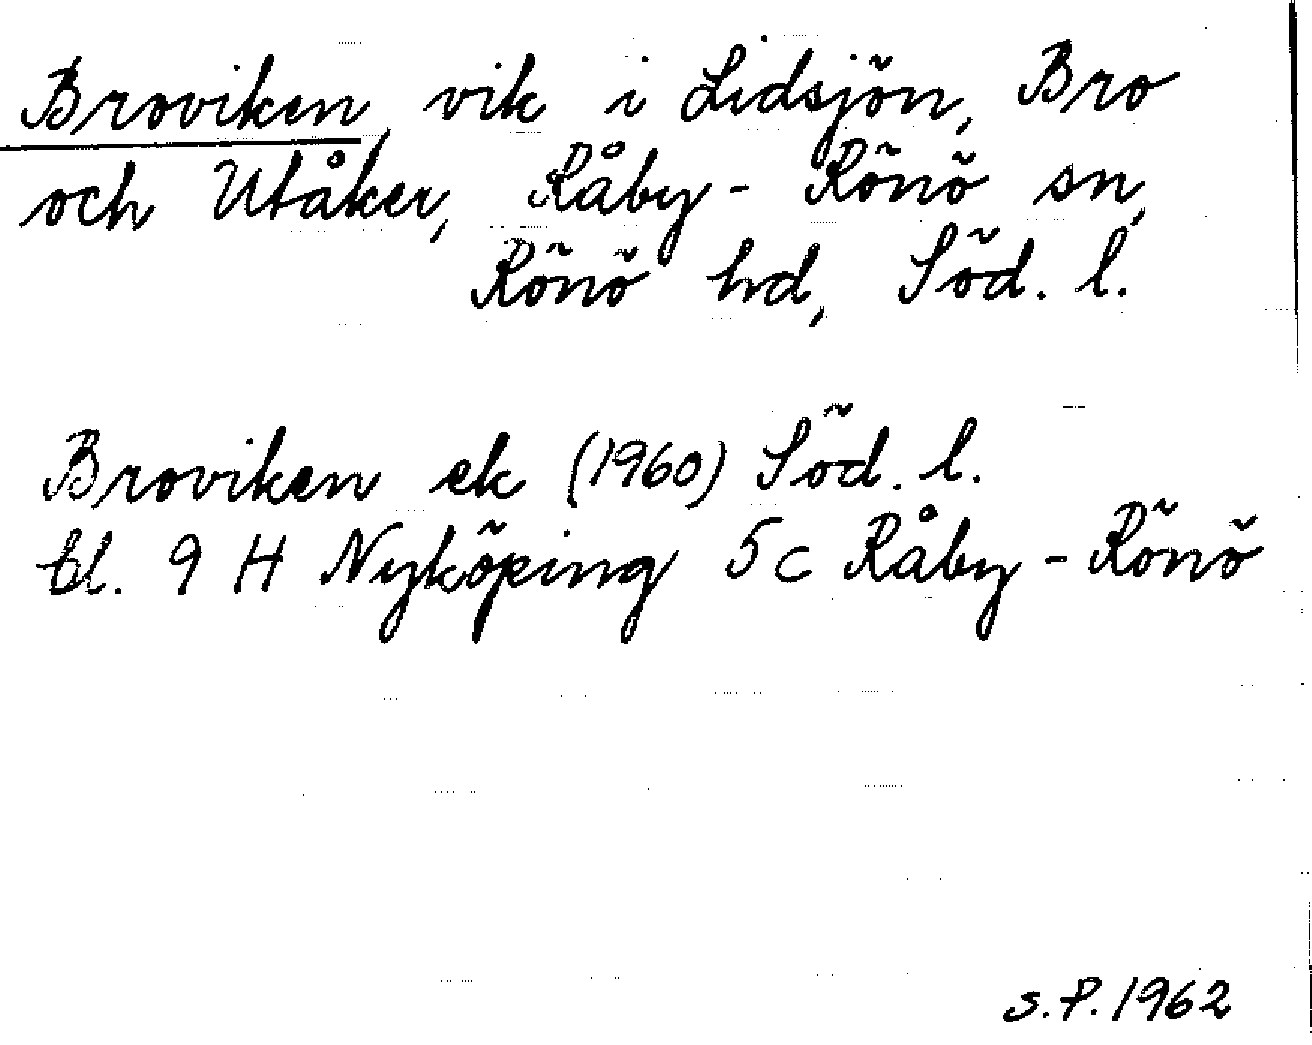 Broviken, vik i Lidsjön, Bro
och Utåker, Råby - Rönö sn,
Rönö hd, Söd. l.
Broviken ek (1960) Söd. l.
bl. 9 H Nyköping 5c Råby - Rönö
S.P. 1962